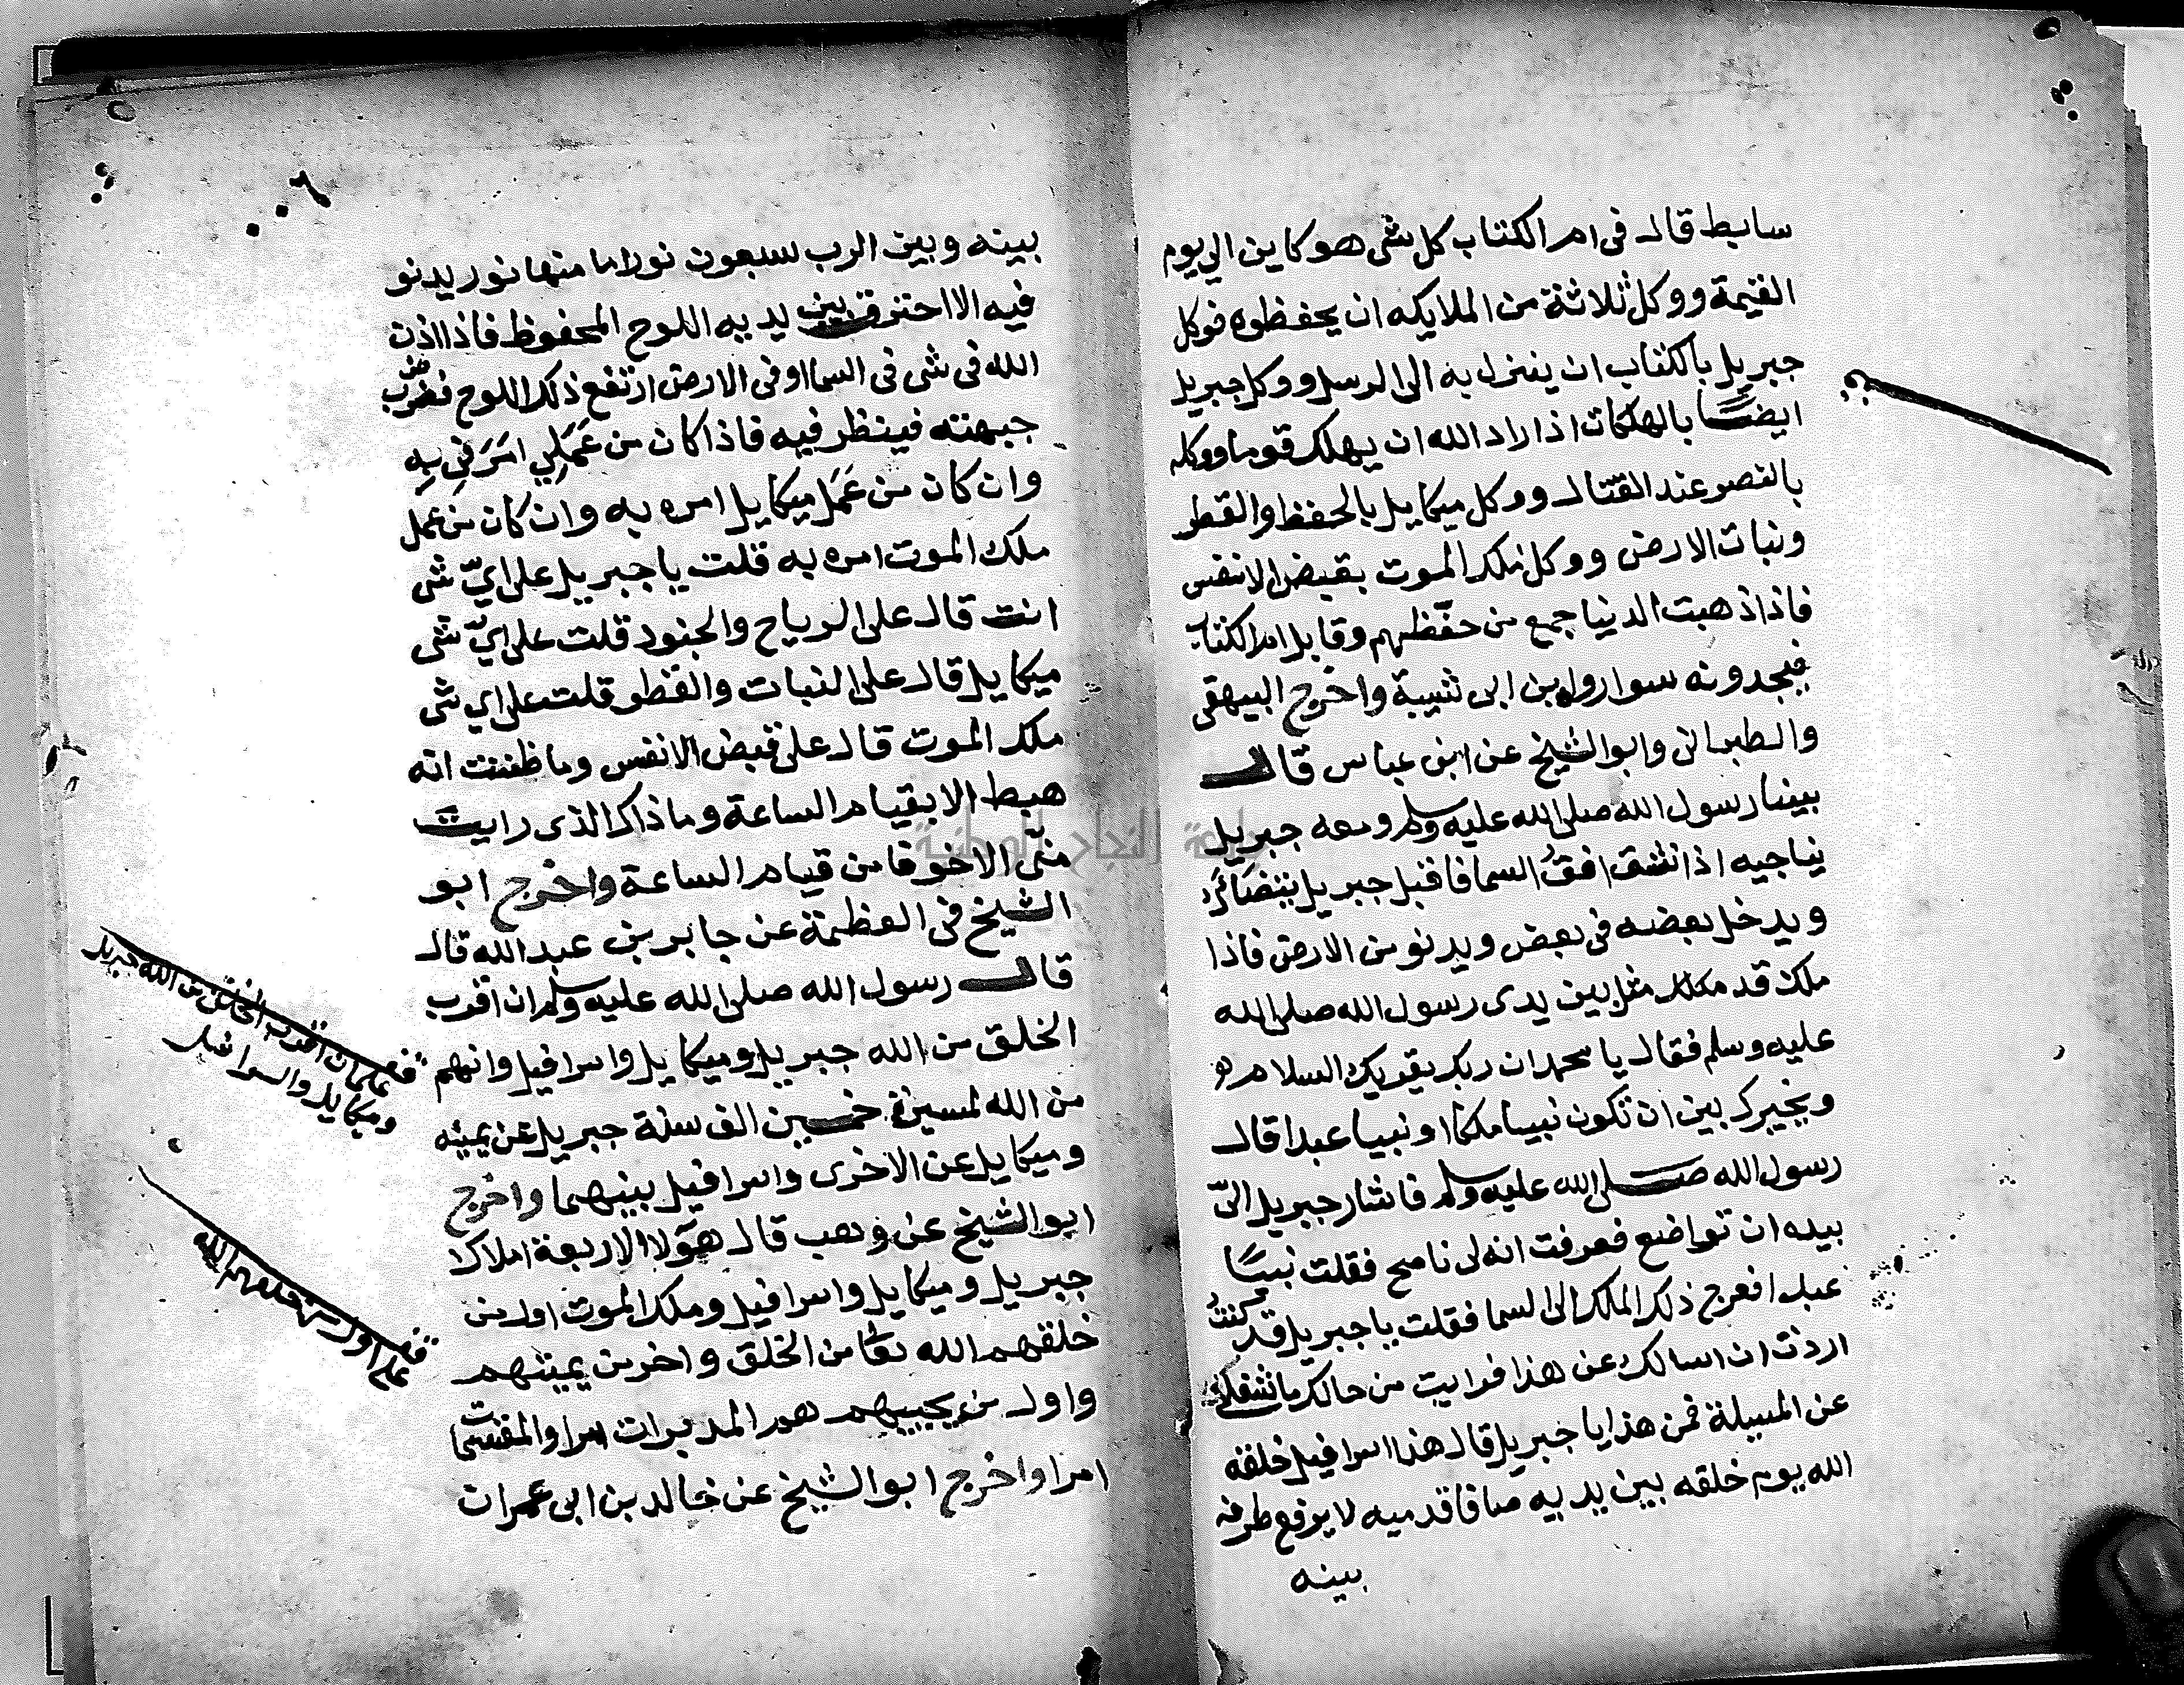 سابط قال فى ام الكتاب كل شى هو كاين الي يوم
القيمة ووكل ثلاثة من الملايكه ان يحفظوه فوكل
جبريل بالكتاب ان ينزل به الى الرسل ووكل جبريل
ايضًا بالهلكات اذا اراد الله ان يهلك قوما ووكله
بالنصر عند القتال ووكل ميكايل بالحفظ والقطر
ونبات الارض ووكل ملك الموت بقبض الانفس
فاذا ذهبت الدنيا جمع من حفظهم وقابل ام الكتاب
فيجدونه سوا رواه بن ابى شيبة واخرج البيهقى
والطبرانى وابو الشيخ عن ابن عباس قال
بينما رسول الله صلى الله عليه وسلم ومعه جبريل
يناجيه اذ انشق افق السما فاقبل جبريل يتضائل
ويدخل بعضه فى بعض ويدنو من الارض فاذا
ملك قد مثل بين يدى رسول الله صلى الله
عليه وسلم فقال يا محمد ان ربك يقريك السلام
ويخيرك بين ان تكون نبيا ملكا او نبيا عبدا قال
رسول الله صلى الله عليه وسلم فاشار جبريل الىّ
بيده ان تواضع فعرفت انه لى ناصح فقلت نبيًا
عبدا فعرج ذلك الملك الى السما فقلت يا جبريل قد كنت
اردت ان اسالك عن هذا فرايت من حالك ما شغلنى
عن المسيلة فمن هذا يا جبريل قال هذا اسرافيل خلقه
الله يوم خلقه بين يديه صافا قدميه لا يرفع طرفه
بينه
بينه وبين الرب سبعون نورا ما منها نور يدنو
فيه الا احترق بين يديه اللوح المحفوظ فاذا اذن
الله فى شى فى السما او فى الارض ارتفع ذلك اللوح فضرب
جبهته فينظر فيه فاذا كان من عَمَلِي امَرَنِى بِهِ
وان كان من عَمَل ميكايل امره به وان كان من عمل
ملك الموت امره به قلت يا جبريل على ايّ شى
انت قال على الرياح والجنود قلت على ايّ شى
ميكايل قال على النبات والقطر قلت على اي شى
ملك الموت قال على قبض الانفس وما ظننت انه
هبط الا بقيام الساعة وما ذاك الذى رايت
منى الا خوفا من قيام الساعة واخرج ابو
الشيخ فى العظمة عن جابر بن عبد الله قال
قال رسول الله صلى الله عليه وسلم ان اقرب
الخلق من الله جبريل وميكايل واسرافيل وانهم
من الله لمسيرة خمسين الف سنة جبريل عن يمينه
وميكايل عن الاخرى واسرافيل بينهما واخرج
ابو الشيخ عن وهب قال هؤلا الاربعة املاك
جبريل وميكايل واسرافيل وملك الموت اول من
خلقهم الله تعا من الخلق واخر من يميتهم
واول من يحييهم هم المدبرات امرا والمقسمات
امرا واخرج ابو الشيخ عن خالد بن ابى عمران
قف
على ان اقرب الخلق من الله جبريل
وميكايل واسرافيل
قف
على اول من خلقهم الله
جامعة النجاح الوطنية